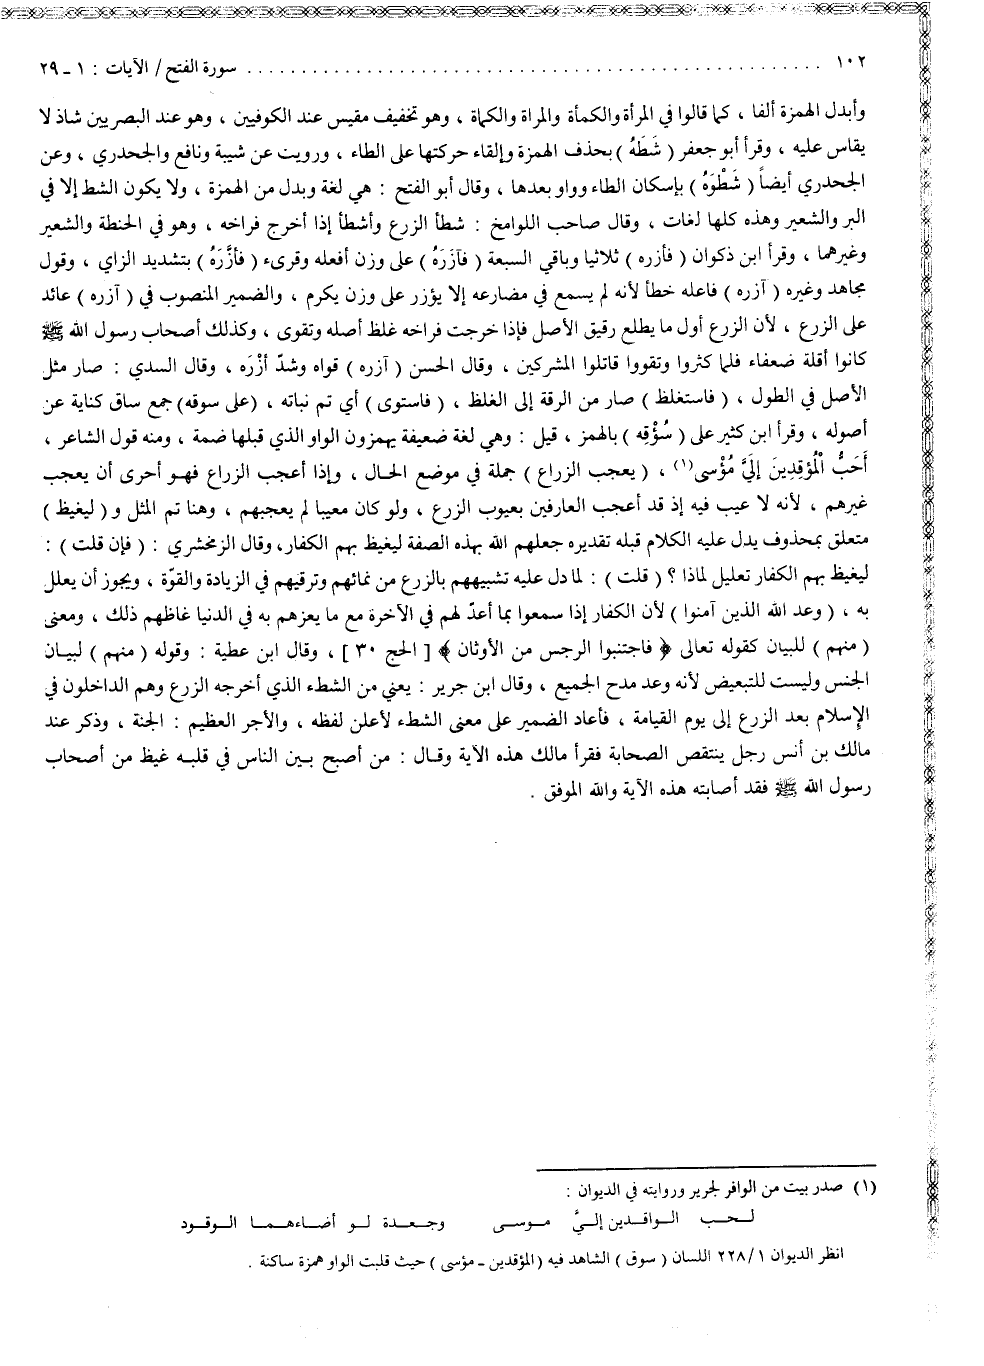 ١٠٢ ............................................................ سورة الفتح / الآيات : ١ - ٢٩
وأبدل الهمزة ألفا ، كما قالوا في المرأة والكمأة والمراة والكماة ، وهو تخفيف مقيس عند الكوفيين ، وهو عند البصريين شاذ لا
يقاس عليه ، وقرأ أبو جعفر ( شَطَهُ ) بحذف الهمزة وإلقاء حركتها على الطاء ، ورويت عن شيبة ونافع والجحدري ، وعن
الجحدري أيضاً ( شَطْوَهُ ) بإسكان الطاء وواو بعدها ، وقال أبو الفتح : هي لغة وبدل من الهمزة ، ولا يكون الشط إلا في
البر والشعير وهذه كلها لغات ، وقال صاحب اللوامخ : شطأ الزرع وأشطأ إذا أخرج فراخه ، وهو في الحنطة والشعير
وغيرهما ، وقرأ ابن ذكوان ( فأزره ) ثلاثيا وباقي السبعة ( فآزَرَهُ ) على وزن أفعله وقرىء ( فأزَّرَهُ ) بتشديد الزاي ، وقول
مجاهد وغيره ( آزره ) فاعله خطأ لأنه لم يسمع في مضارعه إلا يؤزر على وزن يكرم ، والضمير المنصوب في ( آزره ) عائد
على الزرع ، لأن الزرع أول ما يطلع رقيق الأصل فإذا خرجت فراخه غلظ أصله وتقوى ، وكذلك أصحاب رسول الله ﷺ
كانوا أقلة ضعفاء فلما كثروا وتقووا قاتلوا المشركين ، وقال الحسن ( آزره ) قواه وشدّ أزْرَه ، وقال السدي : صار مثل
الأصل في الطول ، ( فاستغلظ ) صار من الرقة إلى الغلظ ، ( فاستوى ) أي تم نباته ، (على سوقه) جمع ساق كناية عن
أصوله ، وقرأ ابن كثير على ( سُؤْقِه ) بالهمز ، قيل : وهي لغة ضعيفة يهمزون الواو الذي قبلها ضمة ، ومنه قول الشاعر ،
أَحَبُّ الْمُؤقِدِينَ إِلَيَّ مُؤْسى(١) ، ( يعجب الزراع ) جملة في موضع الحال ، وإذا أعجب الزراع فهو أحرى أن يعجب
غيرهم ، لأنه لا عيب فيه إذ قد أعجب العارفين بعيوب الزرع ، ولو كان معيبا لم يعجبهم ، وهنا تم المثل و( ليغيظ )
متعلق بمحذوف يدل عليه الكلام قبله تقديره جعلهم الله بهذه الصفة ليغيظ بهم الكفار، وقال الزمخشري : ( فإن قلت ) :
ليغيظ بهم الكفار تعليل لماذا ؟ ( قلت ) : لما دل عليه تشبيههم بالزرع من نمائهم وترقيهم في الزيادة والقوّة ، ويجوز أن يعلل
به ، ( وعد الله الذين آمنوا ) لأن الكفار إذا سمعوا بما أعدّ لهم في الآخرة مع ما يعزهم به في الدنيا غاظهم ذلك ، ومعنى
( منهم ) للبيان كقوله تعالى ﴿ فاجتنبوا الرجس من الأوثان ﴾ [ الحج ٣٠ ] ، وقال ابن عطية : وقوله ( منهم ) لبيان
الجنس وليست للتبعيض لأنه وعد مدح الجميع ، وقال ابن جرير : يعني من الشطء الذي أخرجه الزرع وهم الداخلون في
الإسلام بعد الزرع إلى يوم القيامة ، فأعاد الضمير على معنى الشطء لأعلن لفظه ، والأجر العظيم : الجنة ، وذكر عند
مالك بن أنس رجل ينتقص الصحابة فقرأ مالك هذه الآية وقال : من أصبح بين الناس في قلبه غيظ من أصحاب
رسول الله ﷺ فقد أصابته هذه الآية والله الموفق .
(١) صدر بيت من الوافر لجرير وروايته في الديوان :
لحب الواقدين إليَّ موسى وجعدة لو أضاءهما الوقود
انظر الديوان ٢٢٨/١ اللسان ( سوق ) الشاهد فيه (المؤقدين - مؤسى ) حيث قلبت الواو همزة ساكنة .